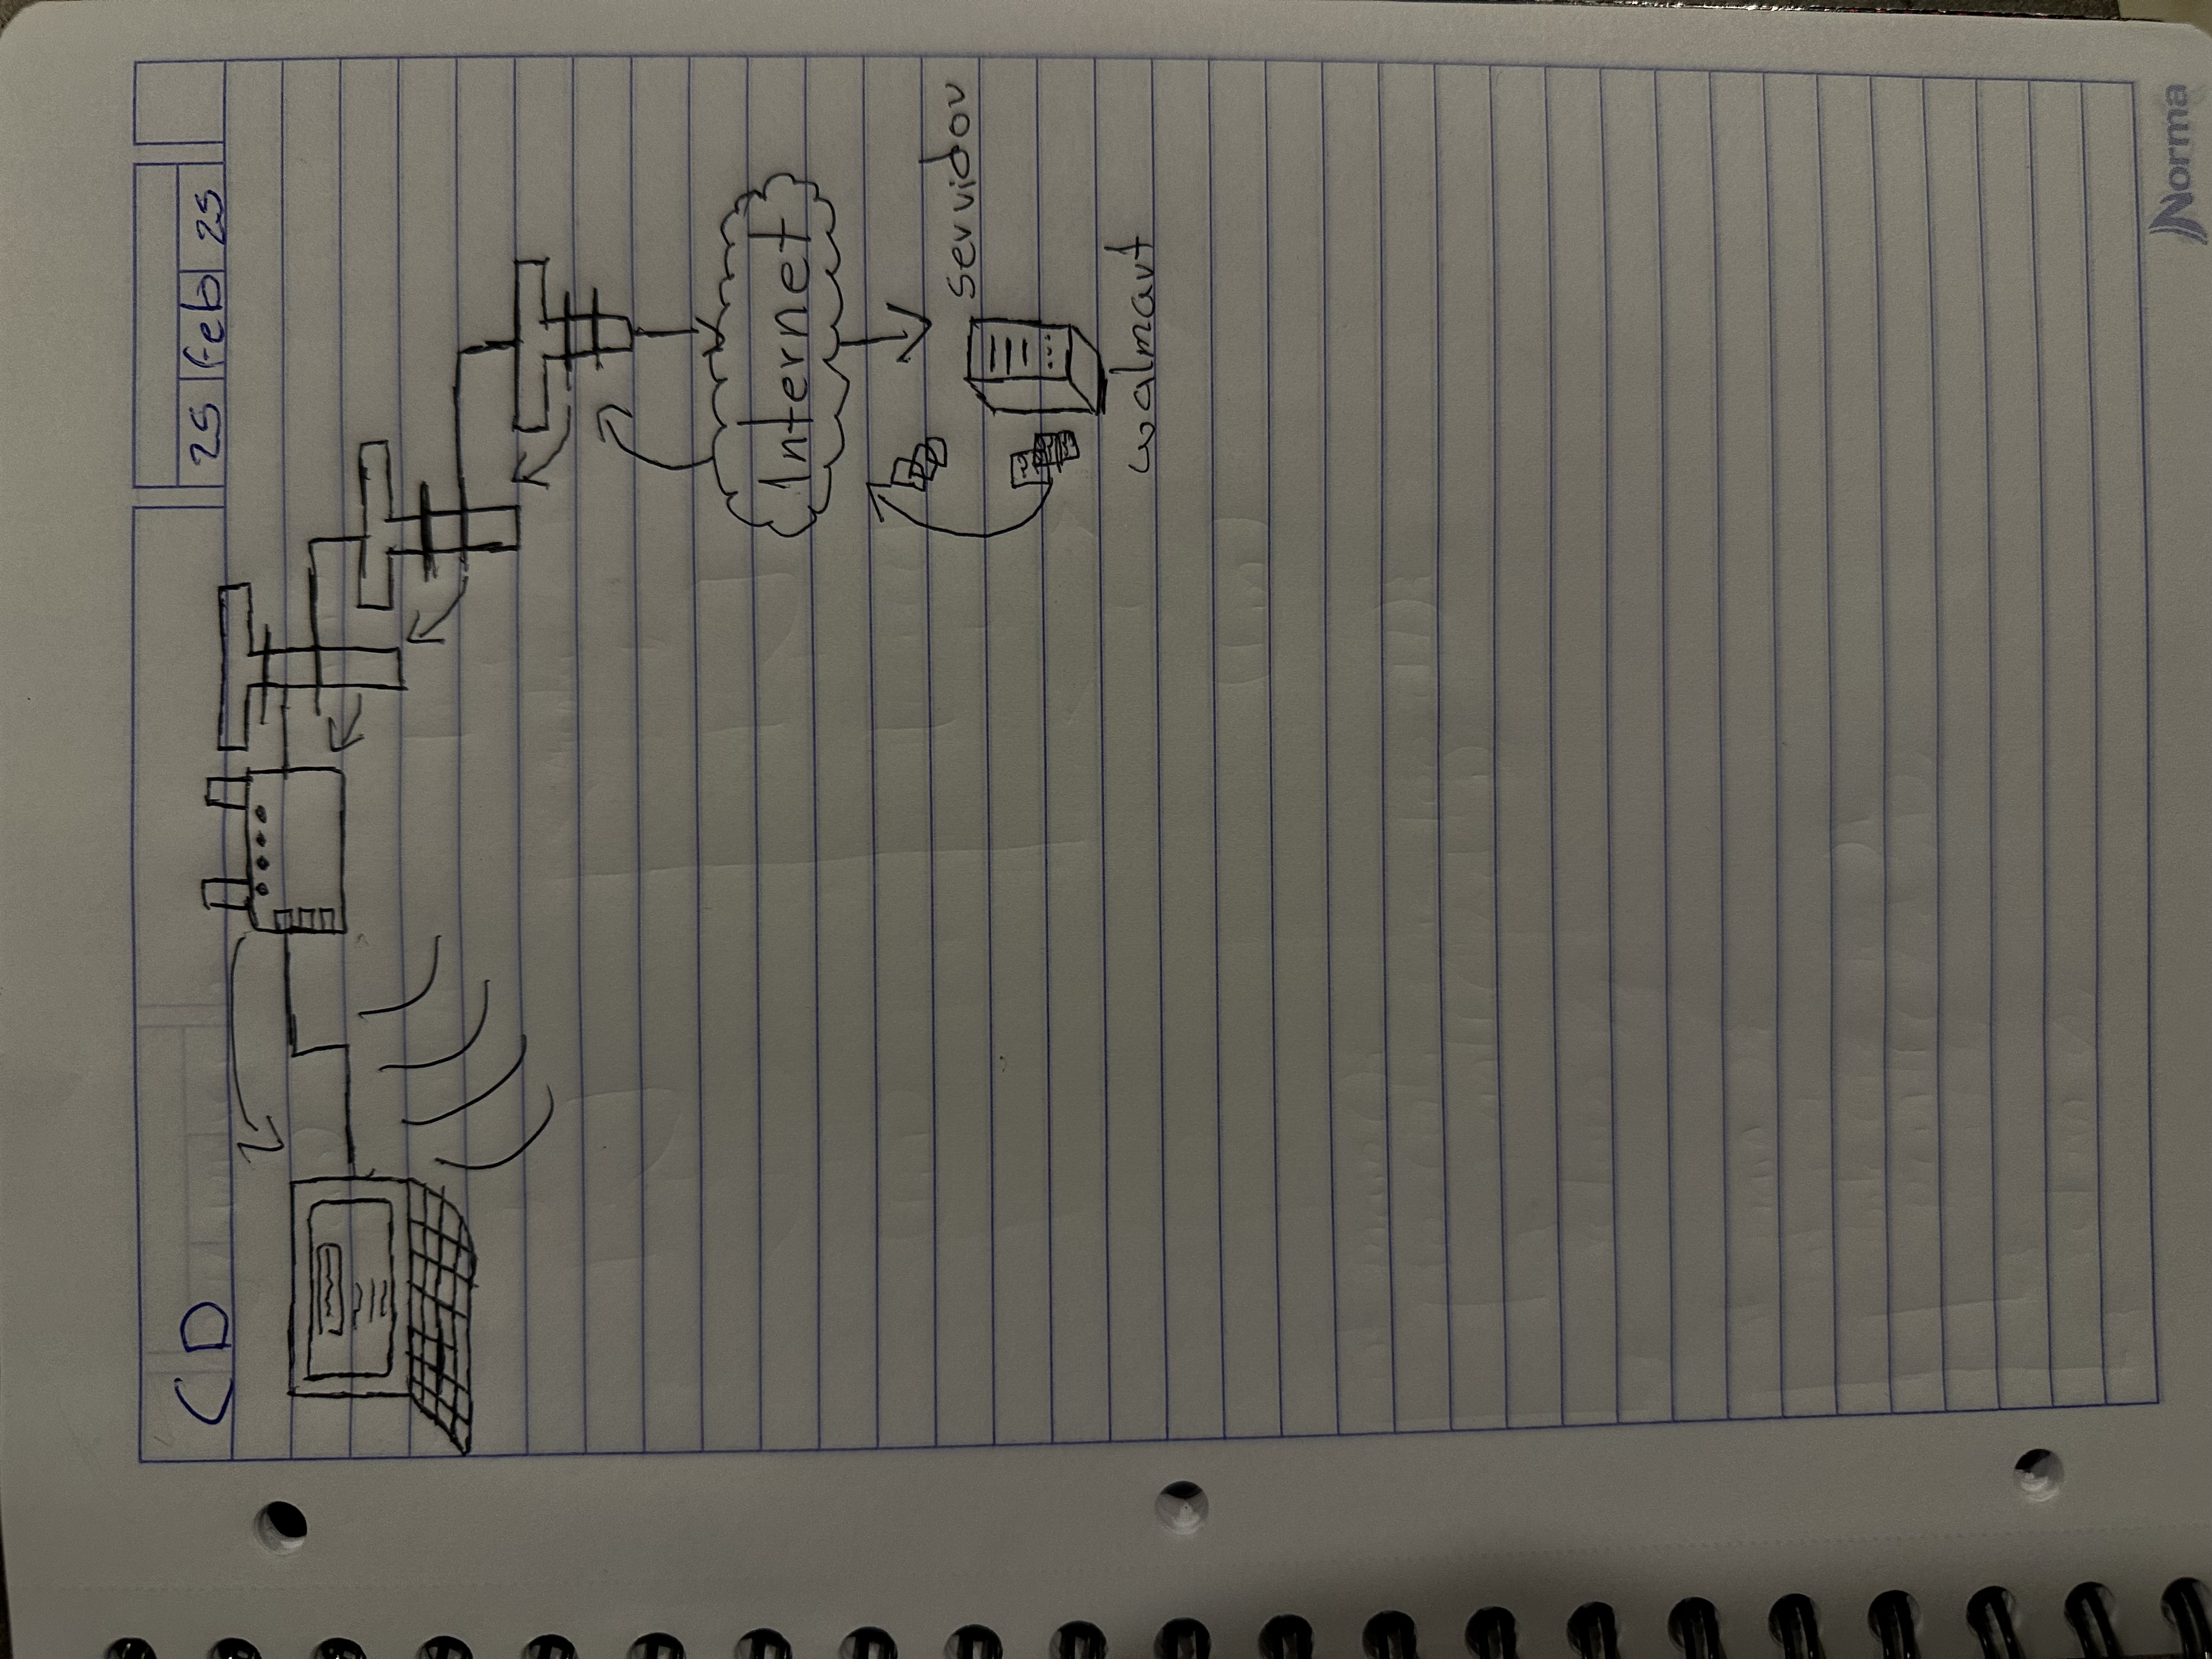 CD
25 Feb 25
Internet
servidor
walmart
Norma